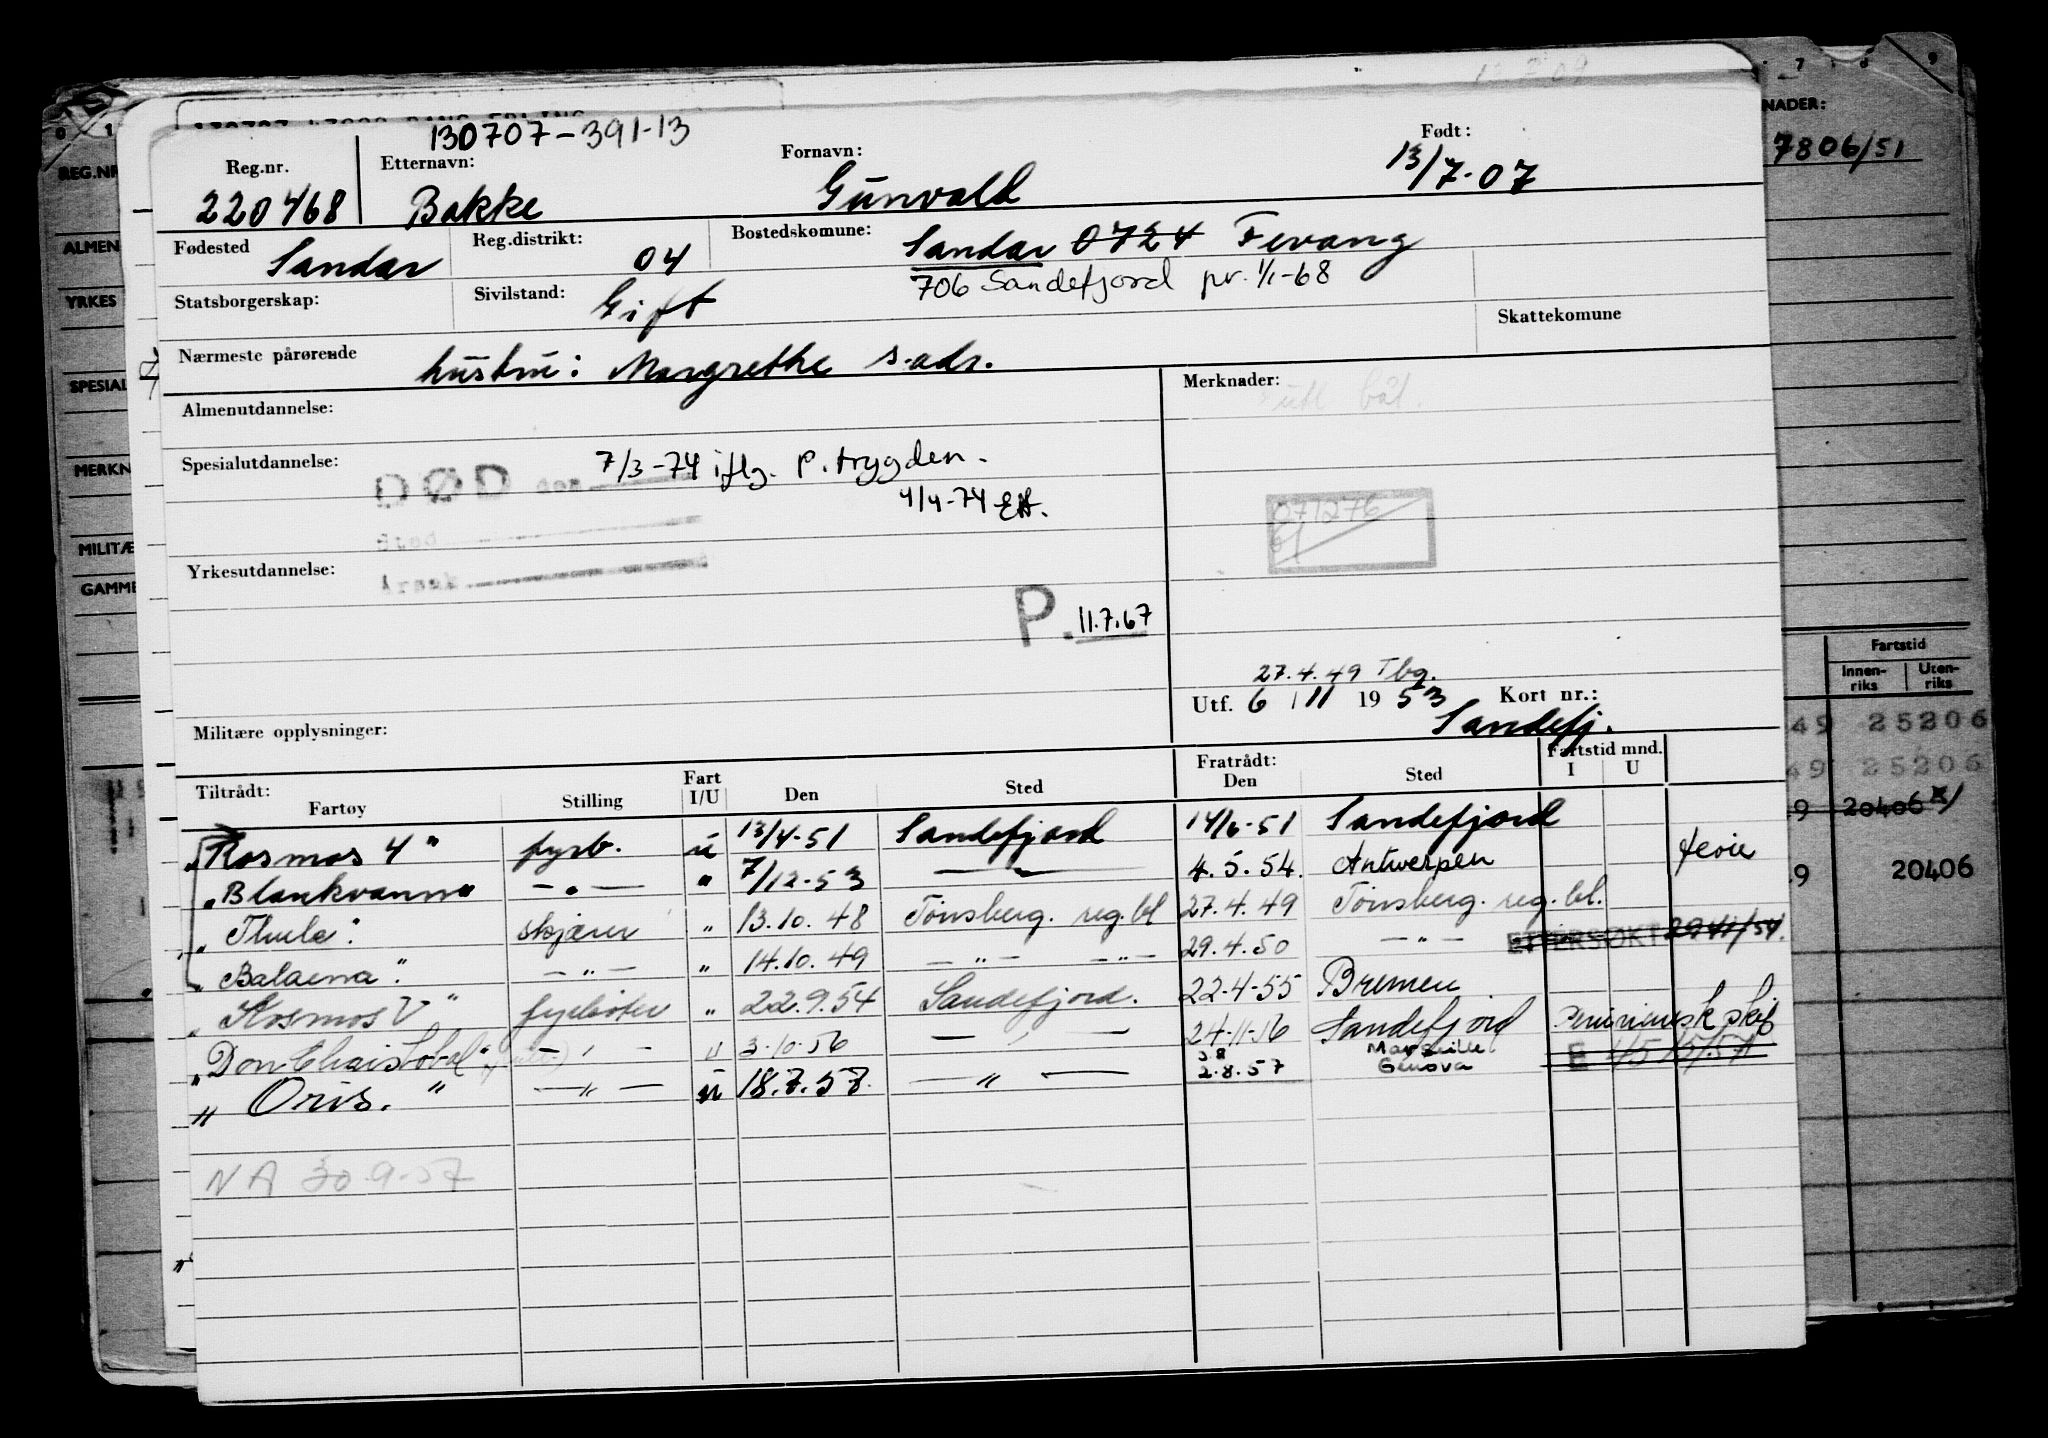 130707-391-13
Reg.nr. Etternavn: Fornavn: Født:
220468 Bakke Gunvald 13/7-07
Fødested Sandar Reg.distrikt: 04 Bostedskomune: Sandar 0724 Fevang
706 Sandefjord pr. 1/1-68
Statsborgerskap: Sivilstand: Gift Skattekomune
Nærmeste pårørende hustru: Margrethe s. adr.
Almenutdannelse: Merknader:
utl båt.
Spesialutdannelse: DØD den 7/3-74 iflg. P. trygden.
4/4-74
Sted
271276
Yrkesutdannelse: Årsak
P. 11.7.67
27.4.49 Tbg.
Utf. 6/11 1953 Kort nr.:
Sandefj.
Militære opplysninger:
Tiltrådt: Fratrådt: Fartstid mnd.
Fartøy Stilling Fart I/U Den Sted Den Sted I U
"Kosmos 4" fyrb. u 13/4-51 Sandefjord 14/6-51 Sandefjord
"Blankvann" — " — " 7/12-53 — " — 4.5.54. Antwerpen ferie
"Thule". skjærer " 13.10.48 Tønsberg. reg. bl 27.4.49 Tønsberg. reg. bl.
"Balaena". — " — " 14.10.49 — " — — " — 29.4.50 — " — ETTERSØKT
"Kosmos V" fyrbøter " 22.9.54 Sandefjord. 22.4-55 Bremen
" — " — " 3.10.56 — " — 24-11-16 Sandefjord
Marseille
"Oris." — " — u 18.7.57. — " — 2.8.57 Genova
NA 30.9-57
REG.NR
ALMEN
YRKES
SPESIAL
MERKN
MILITÆ
GAMME
NADER:
7806/51
Fartstid
Innen-riks Uten-riks
49 25206
49 25206
9 20406
9 20406